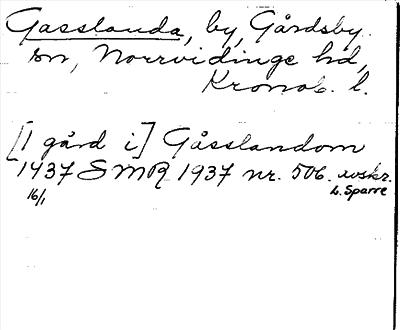 Gasslanda, by, Gårdsby
sn, Norrvidinge hd,
Kronob. l.
[1 gård i] Gåsslandom
1437 SMR 1937 nr. 506. avskr.
16/1 L. Sparre